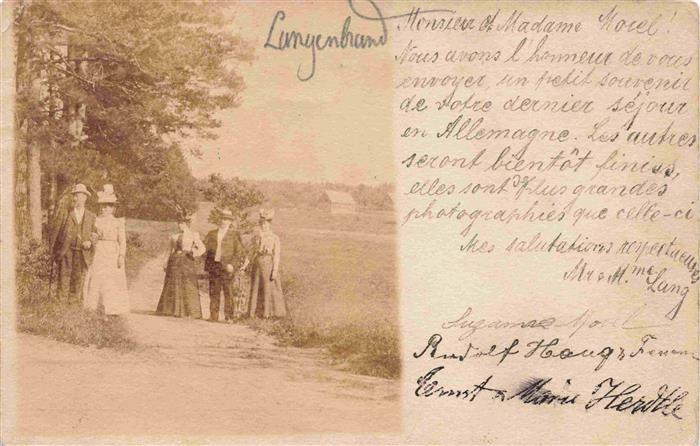 Langenbrand
Monsieur et Madame Morel!
Nous avons l'honneur de vous
envoyer un petit souvenir
de votre dernier séjour
en Allemagne. Les autres
seront bientôt finies,
elles sont plus grandes
photographies que celle-ci
Mes salutations respectueuses
Mr & Mme Lang
Suzanne Morel
Rudolf Haug &
Ernst & Marie Herdtle